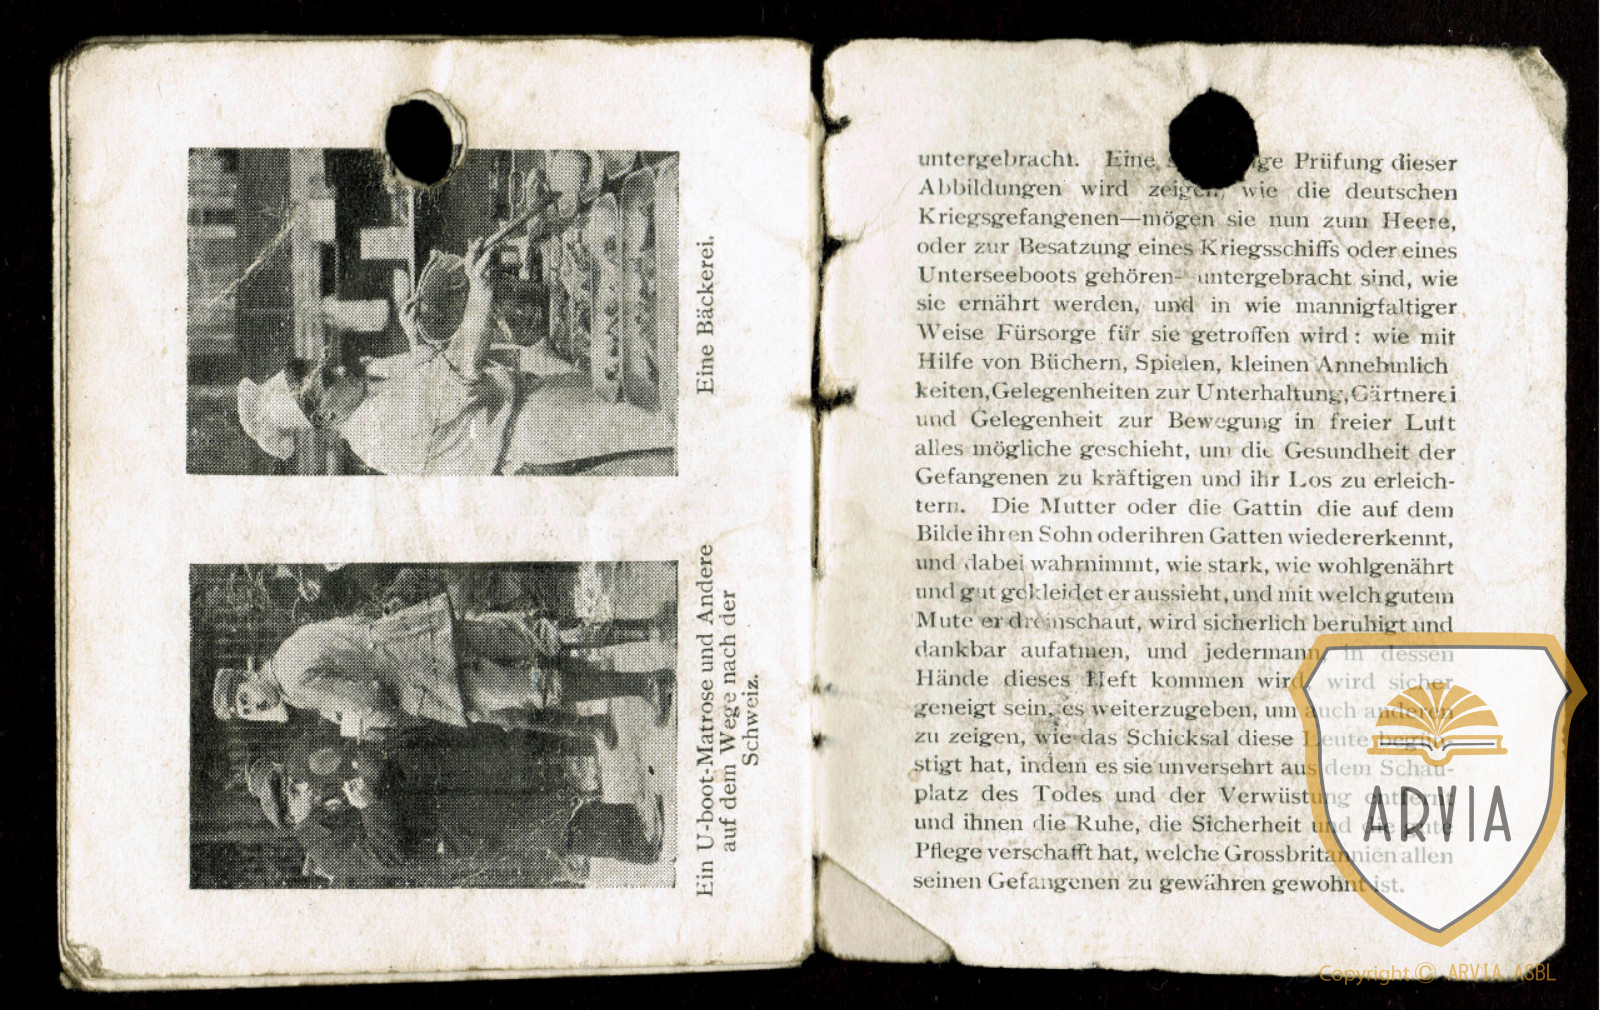 Eine Bäckerei.
Ein U-boot-Matrose und Andere
auf dem Wege nach der
Schweiz.
untergebracht. Eine ge Prüfung dieser
Abbildungen wird zeigen, wie die deutschen
Kriegsgefangenen—mögen sie nun zum Heere,
oder zur Besatzung eines Kriegsschiffs oder eines
Unterseeboots gehören—untergebracht sind, wie
sie ernährt werden, und in wie mannigfaltiger
Weise Fürsorge für sie getroffen wird: wie mit
Hilfe von Büchern, Spielen, kleinen Annehmlich
keiten, Gelegenheiten zur Unterhaltung, Gärtnerei
und Gelegenheit zur Bewegung in freier Luft
alles mögliche geschieht, um die Gesundheit der
Gefangenen zu kräftigen und ihr Los zu erleich-
tern. Die Mutter oder die Gattin die auf dem
Bilde ihren Sohn oder ihren Gatten wiedererkennt,
und dabei wahrnimmt, wie stark, wie wohlgenährt
und gut gekleidet er aussieht, und mit welch gutem
Mute er dreinschaut, wird sicherlich beruhigt und
dankbar aufatmen, und jedermann, in dessen
Hände dieses Heft kommen wird, wird sicher
geneigt sein, es weiterzugeben, um auch anderen
zu zeigen, wie das Schicksal diese Leute begün-
stigt hat, indem es sie unversehrt aus dem Schau-
platz des Todes und der Verwüstung entfernt
und ihnen die Ruhe, die Sicherheit und die gute
Pflege verschafft hat, welche Grossbritannien allen
seinen Gefangenen zu gewähren gewohnt ist.
ARVIA
Copyright © ARVIA ASBL